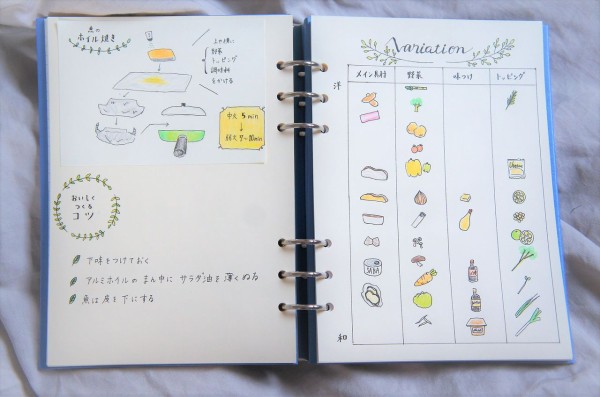 魚の
ホイル焼き
野菜
トッピング
調味料
をかける
中火 5 min
弱火 7〜10min
おいしく
つくる
コツ
下味をつけておく
アルミホイルのまん中にサラダ油を薄くぬる
魚は皮を下にする
Variation
洋
メイン具材
野菜
味つけ
トッピング
SABA
和